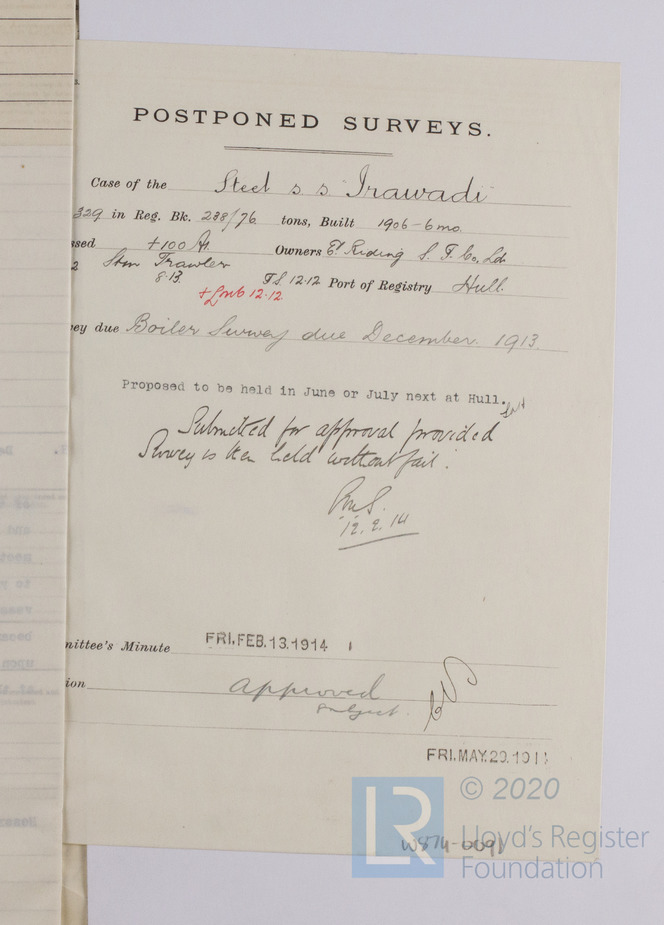 POSTPONED SURVEYS.
Case of the Steel s s "Irawadi"
329 in Reg. Bk. 238/76 tons, Built 1906-6mo.
ssed +100A1 Owners Et. Riding S. F. Co, Ld.
2 Stm Trawler
8.13. TS 12.12 Port of Registry Hull.
+LMC 12.12
ey due Boiler Survey due December 1913.
Proposed to be held in June or July next at Hull.
Submitted for approval provided
Survey is then held without fail.
12.2.14
mittee's Minute FRI. FEB. 13. 1914
ion approved
subject.
FRI. MAY. 29. 191
© 2020
LR
Lloyd's Register
Foundation
W874-0091